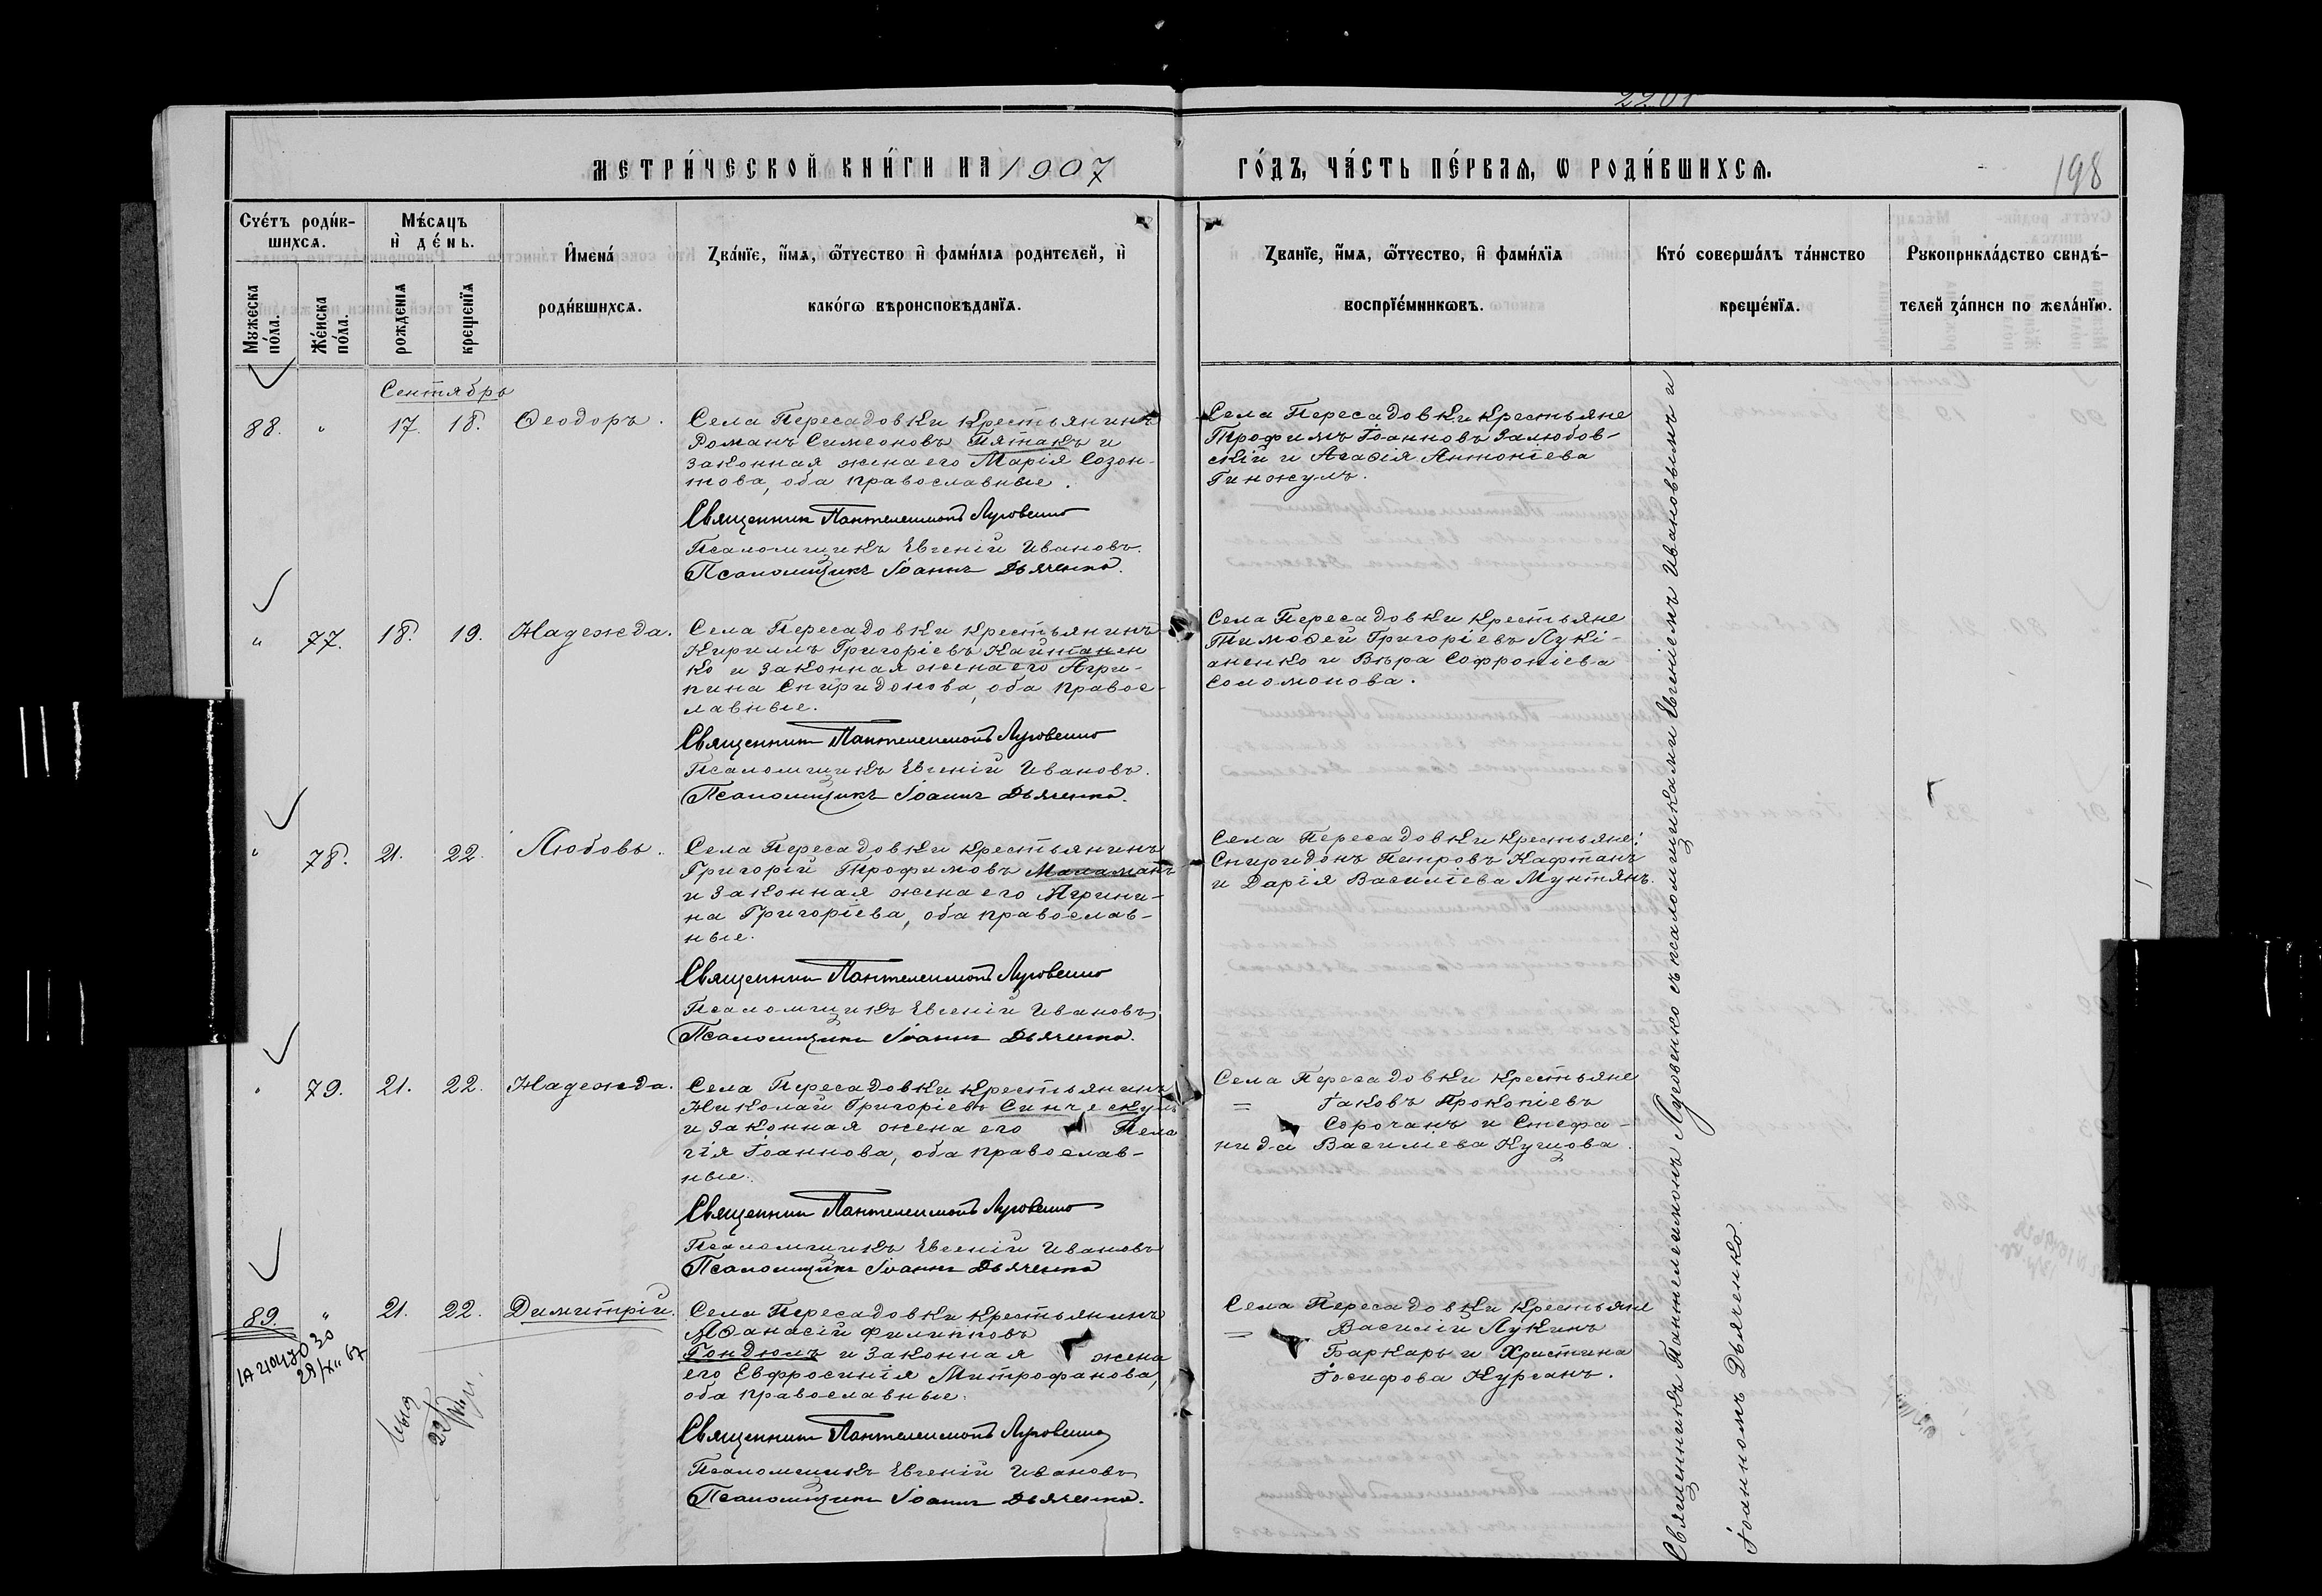 2201
МЕТРИ́ЧЕСКОЙ КНИ́ГИ НА 1907
ГО́ДЪ, ЧА́СТЬ ПЕ́РВАѦ, Ѡ РОДИ́ВШИХСѦ.
198
Сче́тъ роди́в-
шихсѧ.
Мꙋжеска
по́ла.
Же́нска
по́ла.
Мѣ́сѧцъ
и҆ де́нь.
рожденїѧ
крещенїѧ
И҆мена́
роди́вшихсѧ.
Зва́нїе, и҆́мѧ, ѻ҆́тчество и҆ фами́лїѧ родителей, и҆
како́гѡ вѣроисповѣданїѧ.
Зва́нїе, и҆́мѧ, ѻ҆́тчество, и҆ фами́лїѧ
воспрїе́мниковъ.
Кто́ соверша́лъ та́инство
креще́нїѧ.
Рꙋкоприкла́дство свидѣ́-
телей за́писи по жела́нїю.
Сентябрь
88. " 17. 18. Ѳеодоръ.
Села Пересадовки крестьянинъ
Романъ Симеоновъ Пятакъ и
законная жена его Марія Созон-
това, оба православные.
Священник Пантелеимонъ Луговенко
Псаломщикъ Евгеній Ивановъ.
Псаломщикъ Іоаннъ Дьяченко.
Села Пересадовки крестьяне
Трофимъ Іоанновъ Залюбов-
скій и Агаѳія Антоніева
Гинжулъ.
" 77. 18. 19. Надежда.
Села Пересадовки крестьянинъ
Кириллъ Григоріевъ Кайтанен
ко и законная жена его Агри-
пина Спиридонова, оба правос-
лавные.
Священник Пантелеимонъ Луговенко
Псаломщикъ Евгеній Ивановъ.
Псаломщикъ Іоаннъ Дьяченко.
Села Пересадовки крестьяне
Тимоѳей Григоріевъ Лукі-
аненко и Вѣра Софроніева
Соломонова.
" 78. 21. 22. Любовь.
Села Пересадовки крестьянинъ
Григорій Трофимовъ Маламанъ
и законная жена его Агрипи-
на Григоріева, оба православ-
ные.
Священник Пантелеимонъ Луговенко
Псаломщикъ Евгеній Ивановъ
Псаломщикъ Іоаннъ Дьяченко.
Села Пересадовки крестьяне:
Спиридонъ Петровъ Кафтанъ
и Дарія Василіева Мунтянъ.
" 79. 21. 22. Надежда.
Села Пересадовки крестьянинъ
Николай Григоріевъ Синческулъ
и законная жена его Пела
гія Іоаннова, оба православ-
ные.
Священник Пантелеимонъ Луговенко
Псаломщикъ Евгеній Ивановъ
Псаломщикъ Іоаннъ Дьяченко
Села Пересадовки крестьяне
= Іаковъ Прокопіевъ
Сорочанъ и Стефа-
нида Василіева Куцова.
89. " 21. 22. Димитрій.
Села Пересадовки крестьянинъ
Аѳанасій Филипповъ
Гондюлъ и законная жена
его Евфросинія Митрофанова,
оба православные.
Священник Пантелеимонъ Луговенко
Псаломщикъ Евгеній Ивановъ
Псаломщикъ Іоаннъ Дьяченко.
Села Пересадовки крестьяне
= Василій Лукинъ
Баркарь и Христина
Іосифова Курганъ.
Священникъ Пантелеимонъ Луговенко съ псаломщиками Евгеніемъ Ивановымъ и
Іоанномъ Дьяченко.